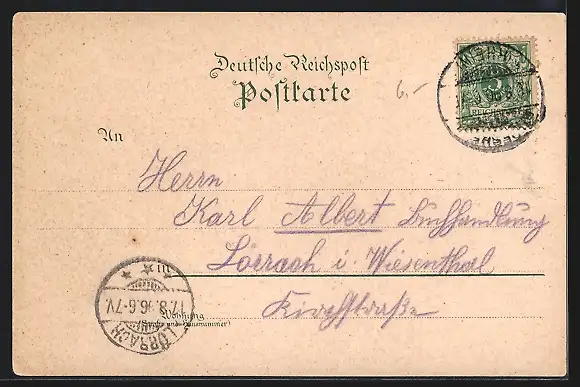 Deutsche Reichspost
Postkarte
6,-
An
Herrn
Karl Albert Buchhandlung
Lörrach i. Wiesenthal
Kirchstraße
Wohnung
(Straße und Hausnummer)
17.8. 6-7V.
LÖRRACH